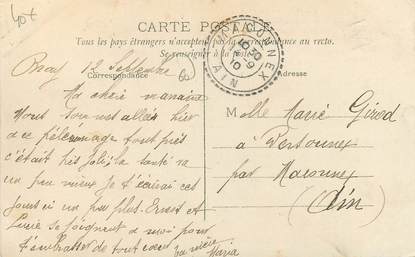 40 x
CARTE POSTALE
Tous les pays étrangers n'acceptent pas la correspondance au recto.
Se renseigner à la poste
Correspondance
Adresse
MACONNEX
10 30
AIN
12 Septembre
Ma chère
Nous sommes allés hier
à ce pélérinage tout près
c'était très joli, la santé va
un peu mieux je t'écrirai ces
jours ci un peu plus. Ernest et
se joignent a moi pour
t'embrasser de tout coeur
Maria
Melle Marie Girod
à Versonnex
par Maconnex
(Ain)